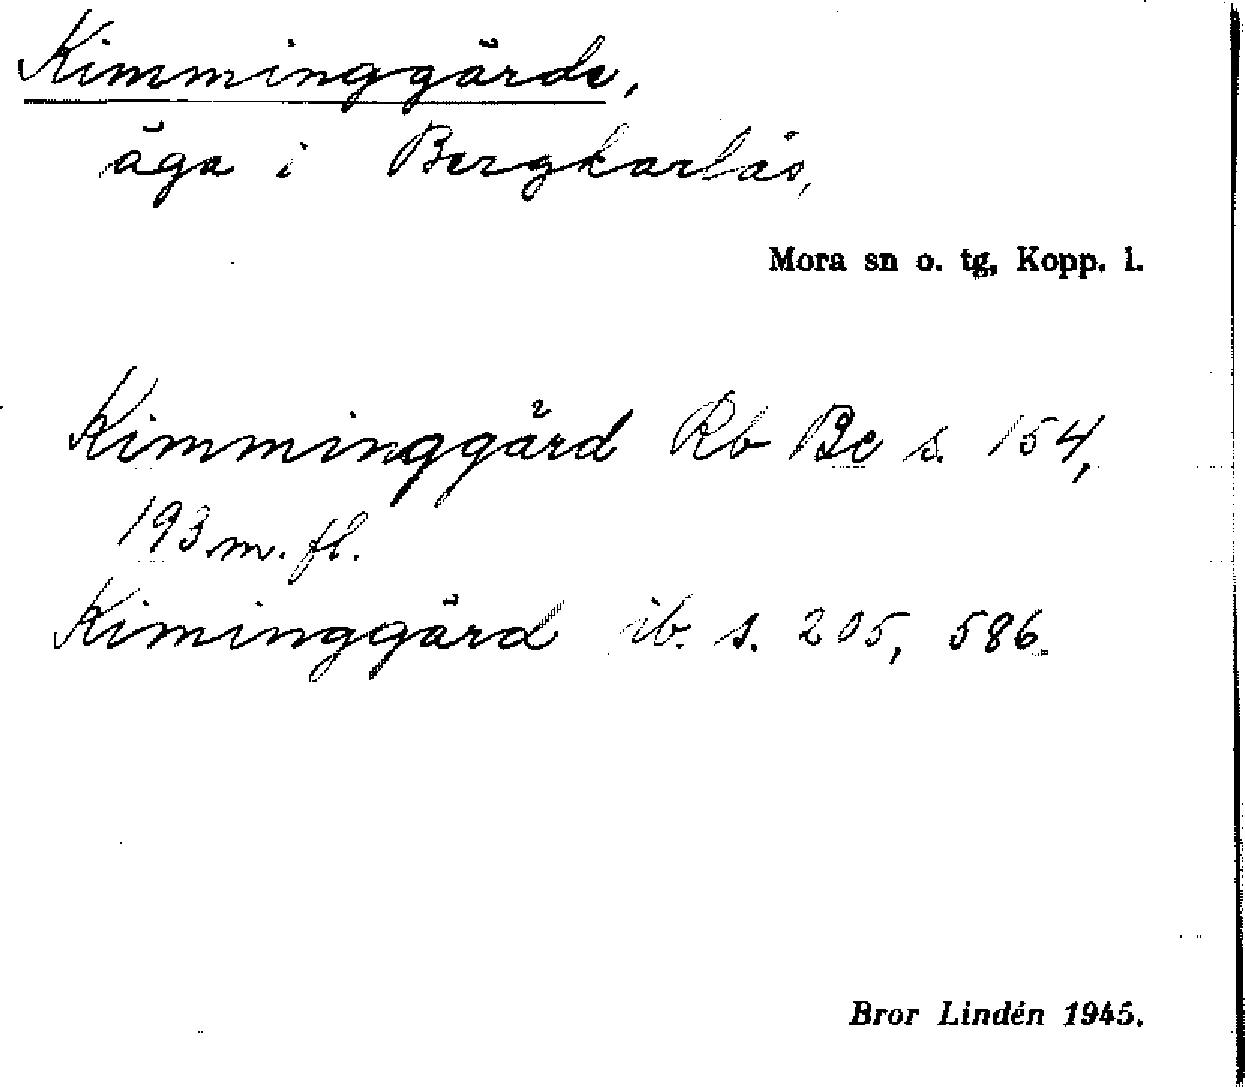 Kimminggärde,
äga i Bergkarlås,
Mora sn o. tg, Kopp. l.
Kimminggård Rb Be s. 154,
193 m. fl.
Kiminggärd ib. s. 205, 586.
Bror Lindén 1945.